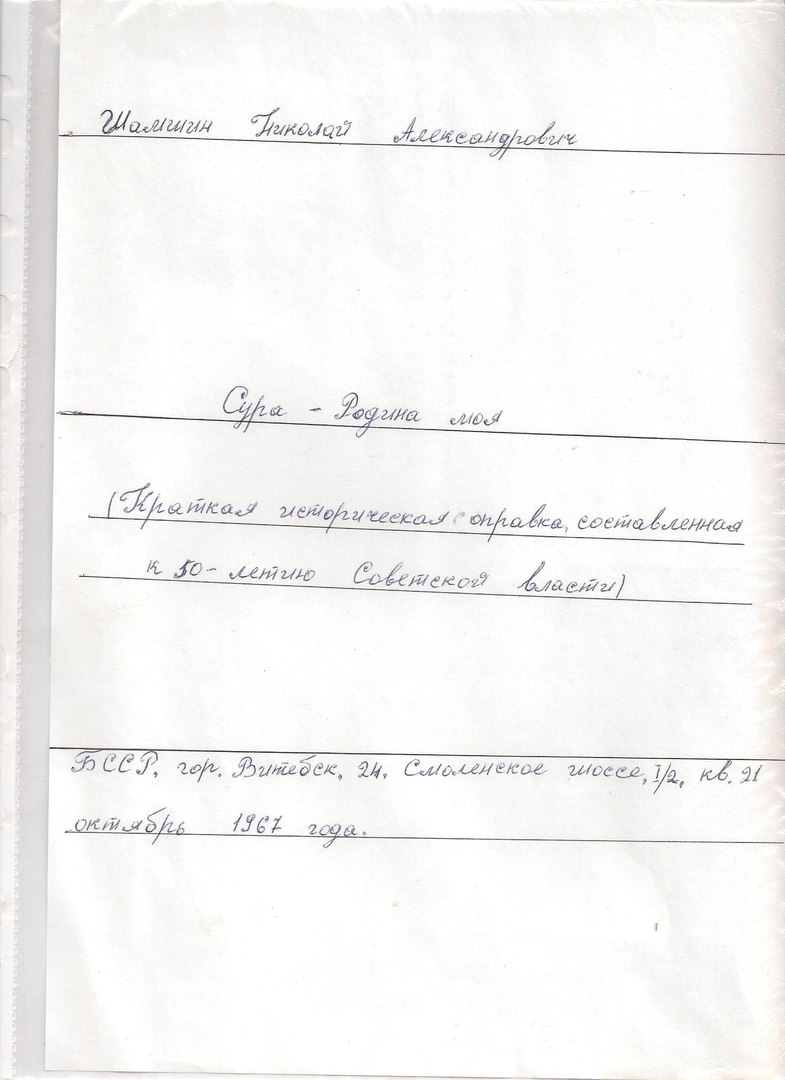 Шамшин Николай Александрович
Сура - Родина моя
(Краткая историческая справка, составленная
к 50-летию Советской власти)
БССР, гор. Витебск, 24, Смоленское шоссе, I/2, кв. 21
октябрь 1967 года.